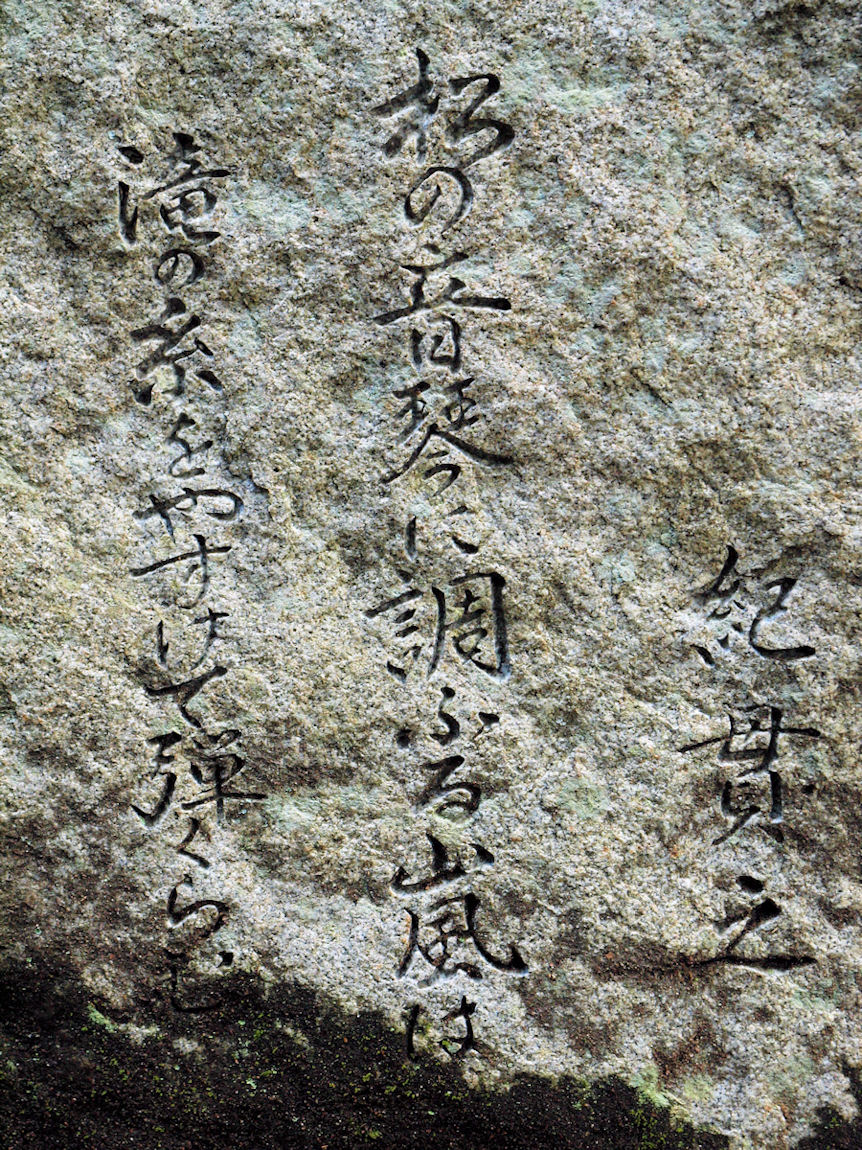 紀貫之
松の音琴に調ふる嵐は
滝の糸をやすけて弾くらむ